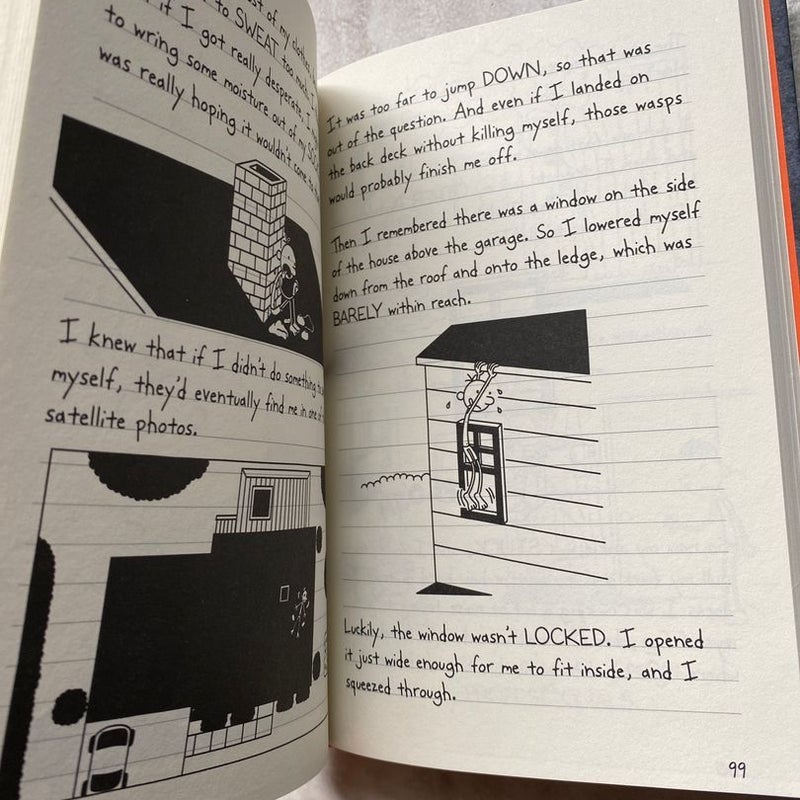 of my clothes
to SWEAT too much.
if I got really desperate, I
to wring some moisture out of my
was really hoping it wouldn't come to
I knew that if I didn't do something
myself, they'd eventually find me in one
satellite photos.
It was too far to jump DOWN, so that was
out of the question. And even if I landed on
the back deck without killing myself, those wasps
would probably finish me off.
Then I remembered there was a window on the side
of the house above the garage. So I lowered myself
down from the roof and onto the ledge, which was
BARELY within reach.
Luckily, the window wasn't LOCKED. I opened
it just wide enough for me to fit inside, and I
squeezed through.
99